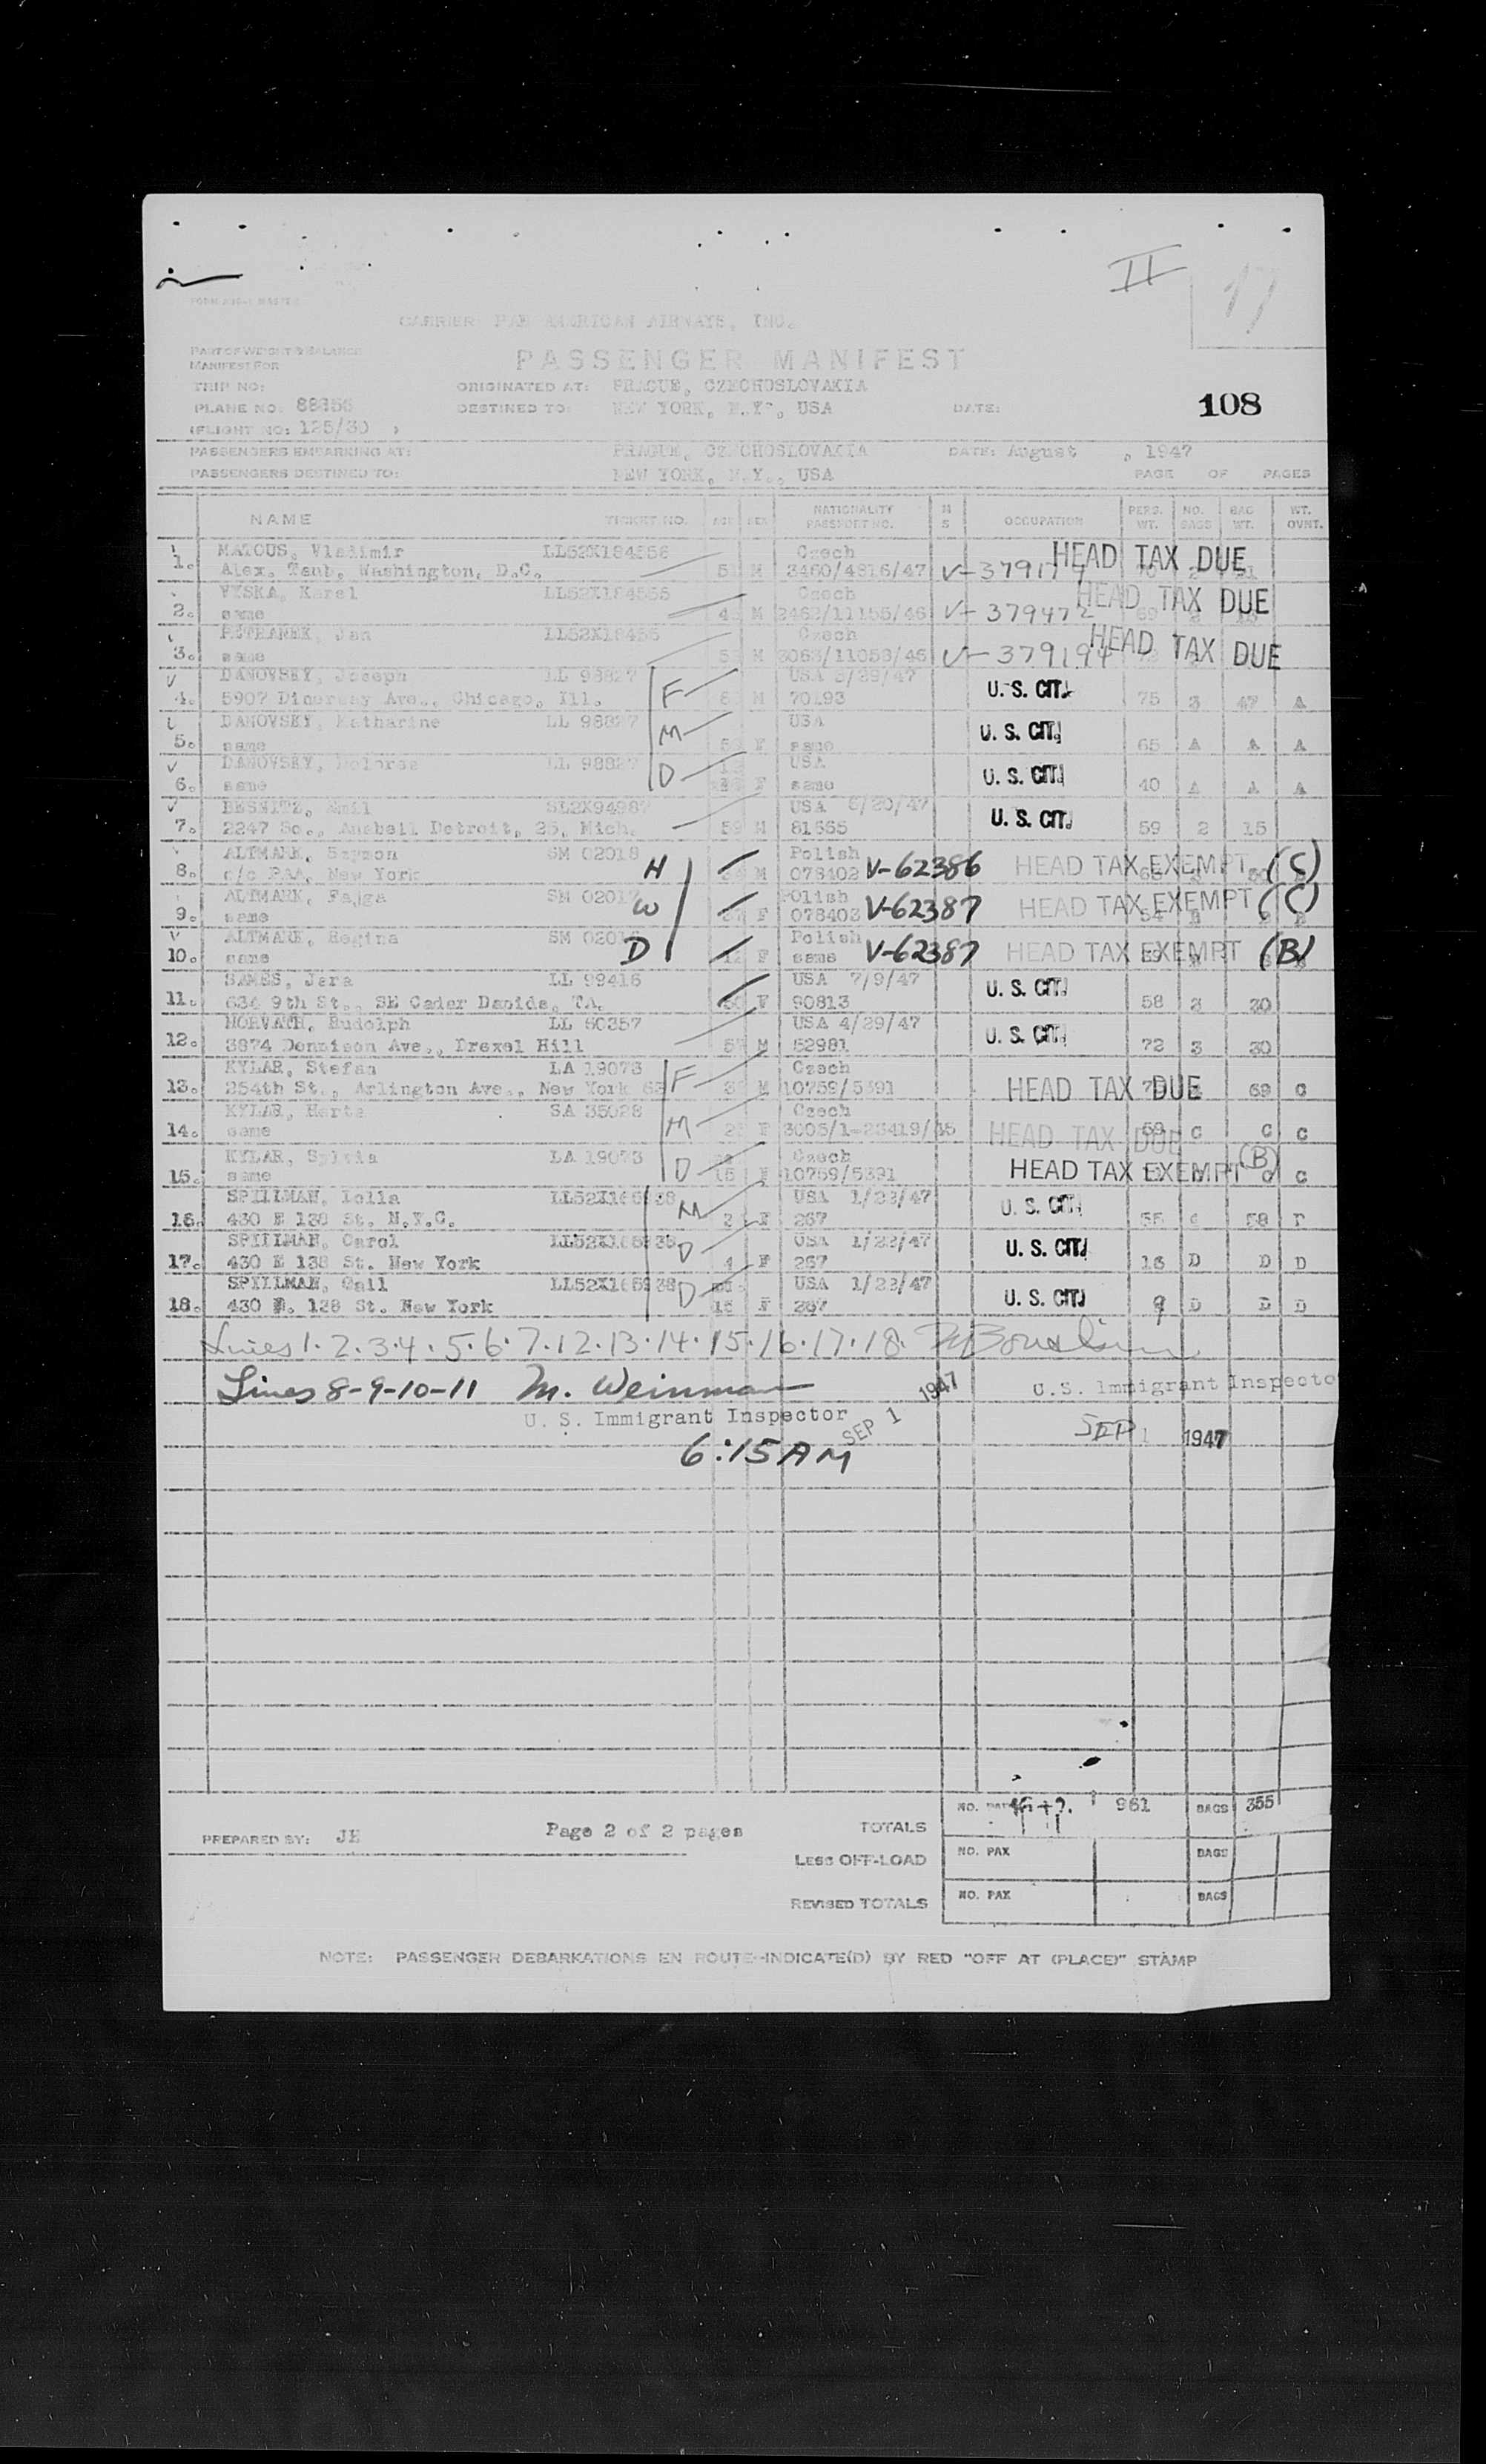 II
17
CARRIER: PAN AMERICAN AIRWAYS, INC.
PASSENGER MANIFEST
PART OF WEIGHT & BALANCE
MANIFEST FOR
TRIP NO:
ORIGINATED AT: PRAGUE, CZECHOSLOVAKIA
PLANE NO: 88856
DESTINED TO: NEW YORK, N.Y., USA
DATE:
108
(FLIGHT NO: 125/30 )
PASSENGERS EMBARKING AT: PRAGUE, CZECHOSLOVAKIA DATE: August , 1947
PASSENGERS DESTINED TO: NEW YORK, N.Y., USA PAGE OF PAGES
NAME TICKET NO. AGE SEX NATIONALITY PASSPORT NO. M S OCCUPATION PERS. WT. NO. BAGS BAG WT. WT. OVNT.
MATOUS, Vladimir LL52X184556 Czech HEAD TAX DUE
1. Alex. Taub, Washington, D.C. M 3460/4816/47
VYSKA, Karel LL52X184555 Czech HEAD TAX DUE
2. same M 2462/11155/46 V-379472
Jan Czech HEAD TAX DUE
3. same M V-379194
DANOVSKY, Joseph LL 98827 F USA U. S. CIT.
4. Ave., Chicago, Ill. M 70193 75 3 47 A
DANOVSKY, Katharine LL 98827 M USA U. S. CIT.
5. same F same 65 A A A
DANOVSKY, Dolores LL 98827 D USA U. S. CIT.
6. same F same 40 A A A
BESNITZ, Emil USA 6/20/47 U. S. CIT.
7. 2247 So., Anabell Detroit, 25, Mich. 59 M 81665 59 2 15
ALTMARK, Szymon SM 02018 H Polish HEAD TAX EXEMPT (C)
8. c/o PAA, New York M 078402 V-62386
ALTMARK, Fajga SM 02017 W Polish HEAD TAX EXEMPT (C)
9. same F 078403 V-62387
ALTMARK, Regina D Polish HEAD TAX EXEMPT (B)
10. same 12 F same V-62387
SAMES, Jara LL 99416 USA 7/9/47 U. S. CIT.
11. 634 9th St., SE Cader Dapids, IA. F 90813 58 3 30
HORVATH, Rudolph LL 60357 USA 4/29/47 U. S. CIT.
12. 3874 Dennison Ave., Drexel Hill M 52981 72 3 30
KYLAR, Stefan LA 19073 F Czech HEAD TAX DUE
13. 254th St., Arlington Ave., New York 63 M 10759/5391 69 C
KYLAR, Herta SA 35028 M Czech HEAD TAX DUE
14. same F 59 C C C
KYLAR, Sylvia LA 19073 D Czech HEAD TAX EXEMPT (B)
15. same 10759/5391 C C
SPILLMAN, Lolla LL52X165938 M USA 1/22/47 U. S. CIT.
16. 430 E 138 St. N.Y.C. F 267 55 58
SPILLMAN, Carol LL52X165938 D USA 1/22/47 U. S. CIT.
17. 430 E 138 St. New York 4 F 267 16 D D D
SPILLMAN, Gail LL52X165938 D USA 1/22/47 U. S. CIT.
18. 430 E. 138 St. New York F 267 9 D D D
Lines 1.2.3.4.5.6.7.12.13.14.15.16.17.18.
Lines 8-9-10-11 M. Weinman SEP 1 1947 U.S. Immigrant Inspector
U. S. Immigrant Inspector
6:15 AM
SEP 1 1947
NO. 961 BAGS 355
PREPARED BY: JH Page 2 of 2 pages TOTALS
LESS OFF-LOAD NO. PAX BAGS
REVISED TOTALS NO. PAX BAGS
NOTE: PASSENGER DEBARKATIONS EN ROUTE-INDICATE(D) BY RED "OFF AT (PLACE)" STAMP